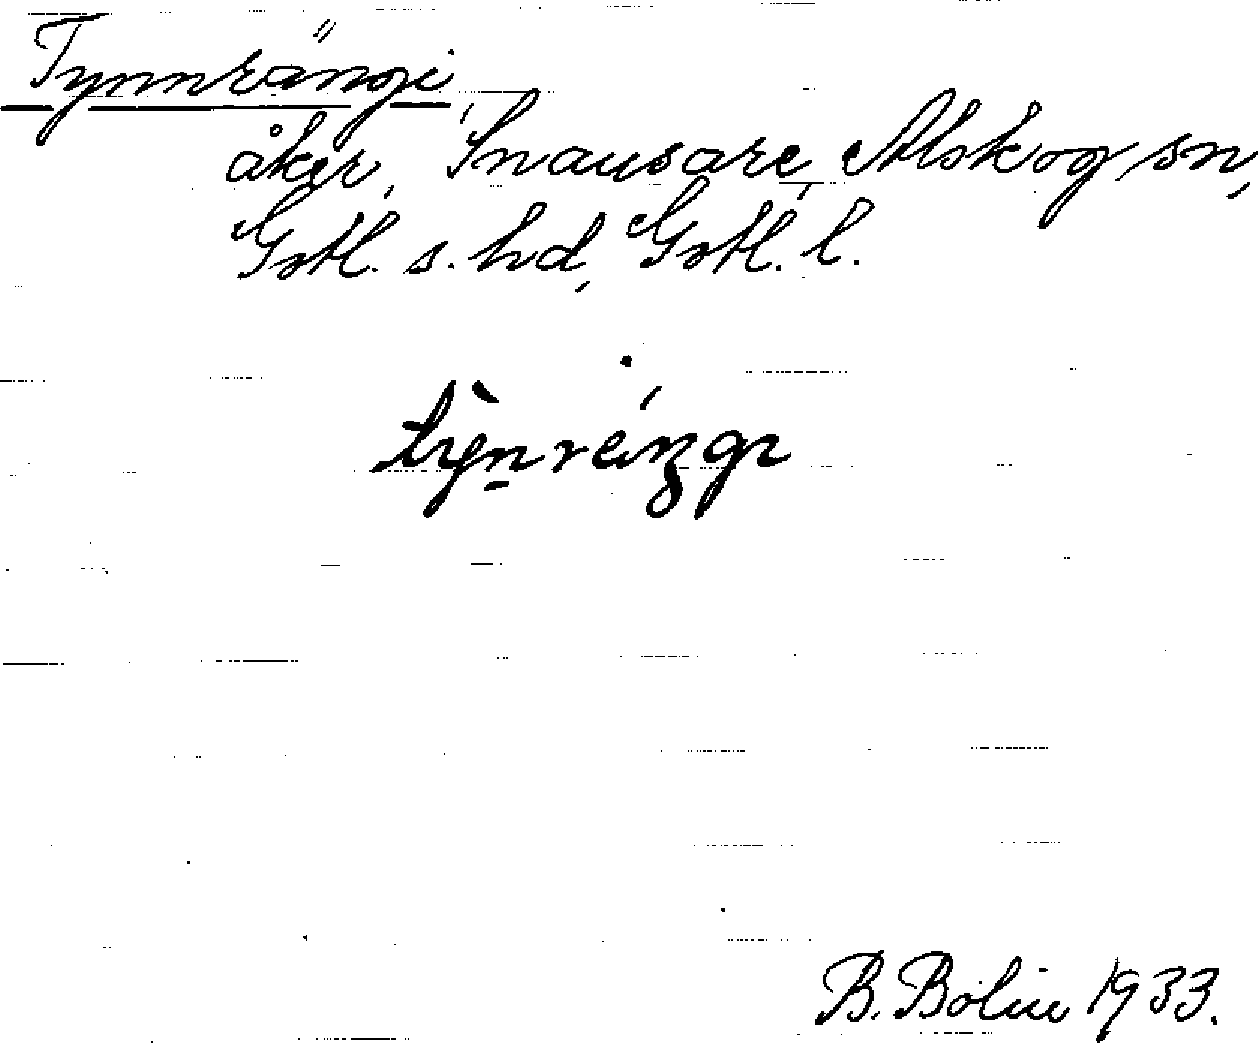 Tynnrängi,
åker, Snausare, Alskog sn,
Gotl. s. hd, Gotl. l.
B. Bolin 1933.